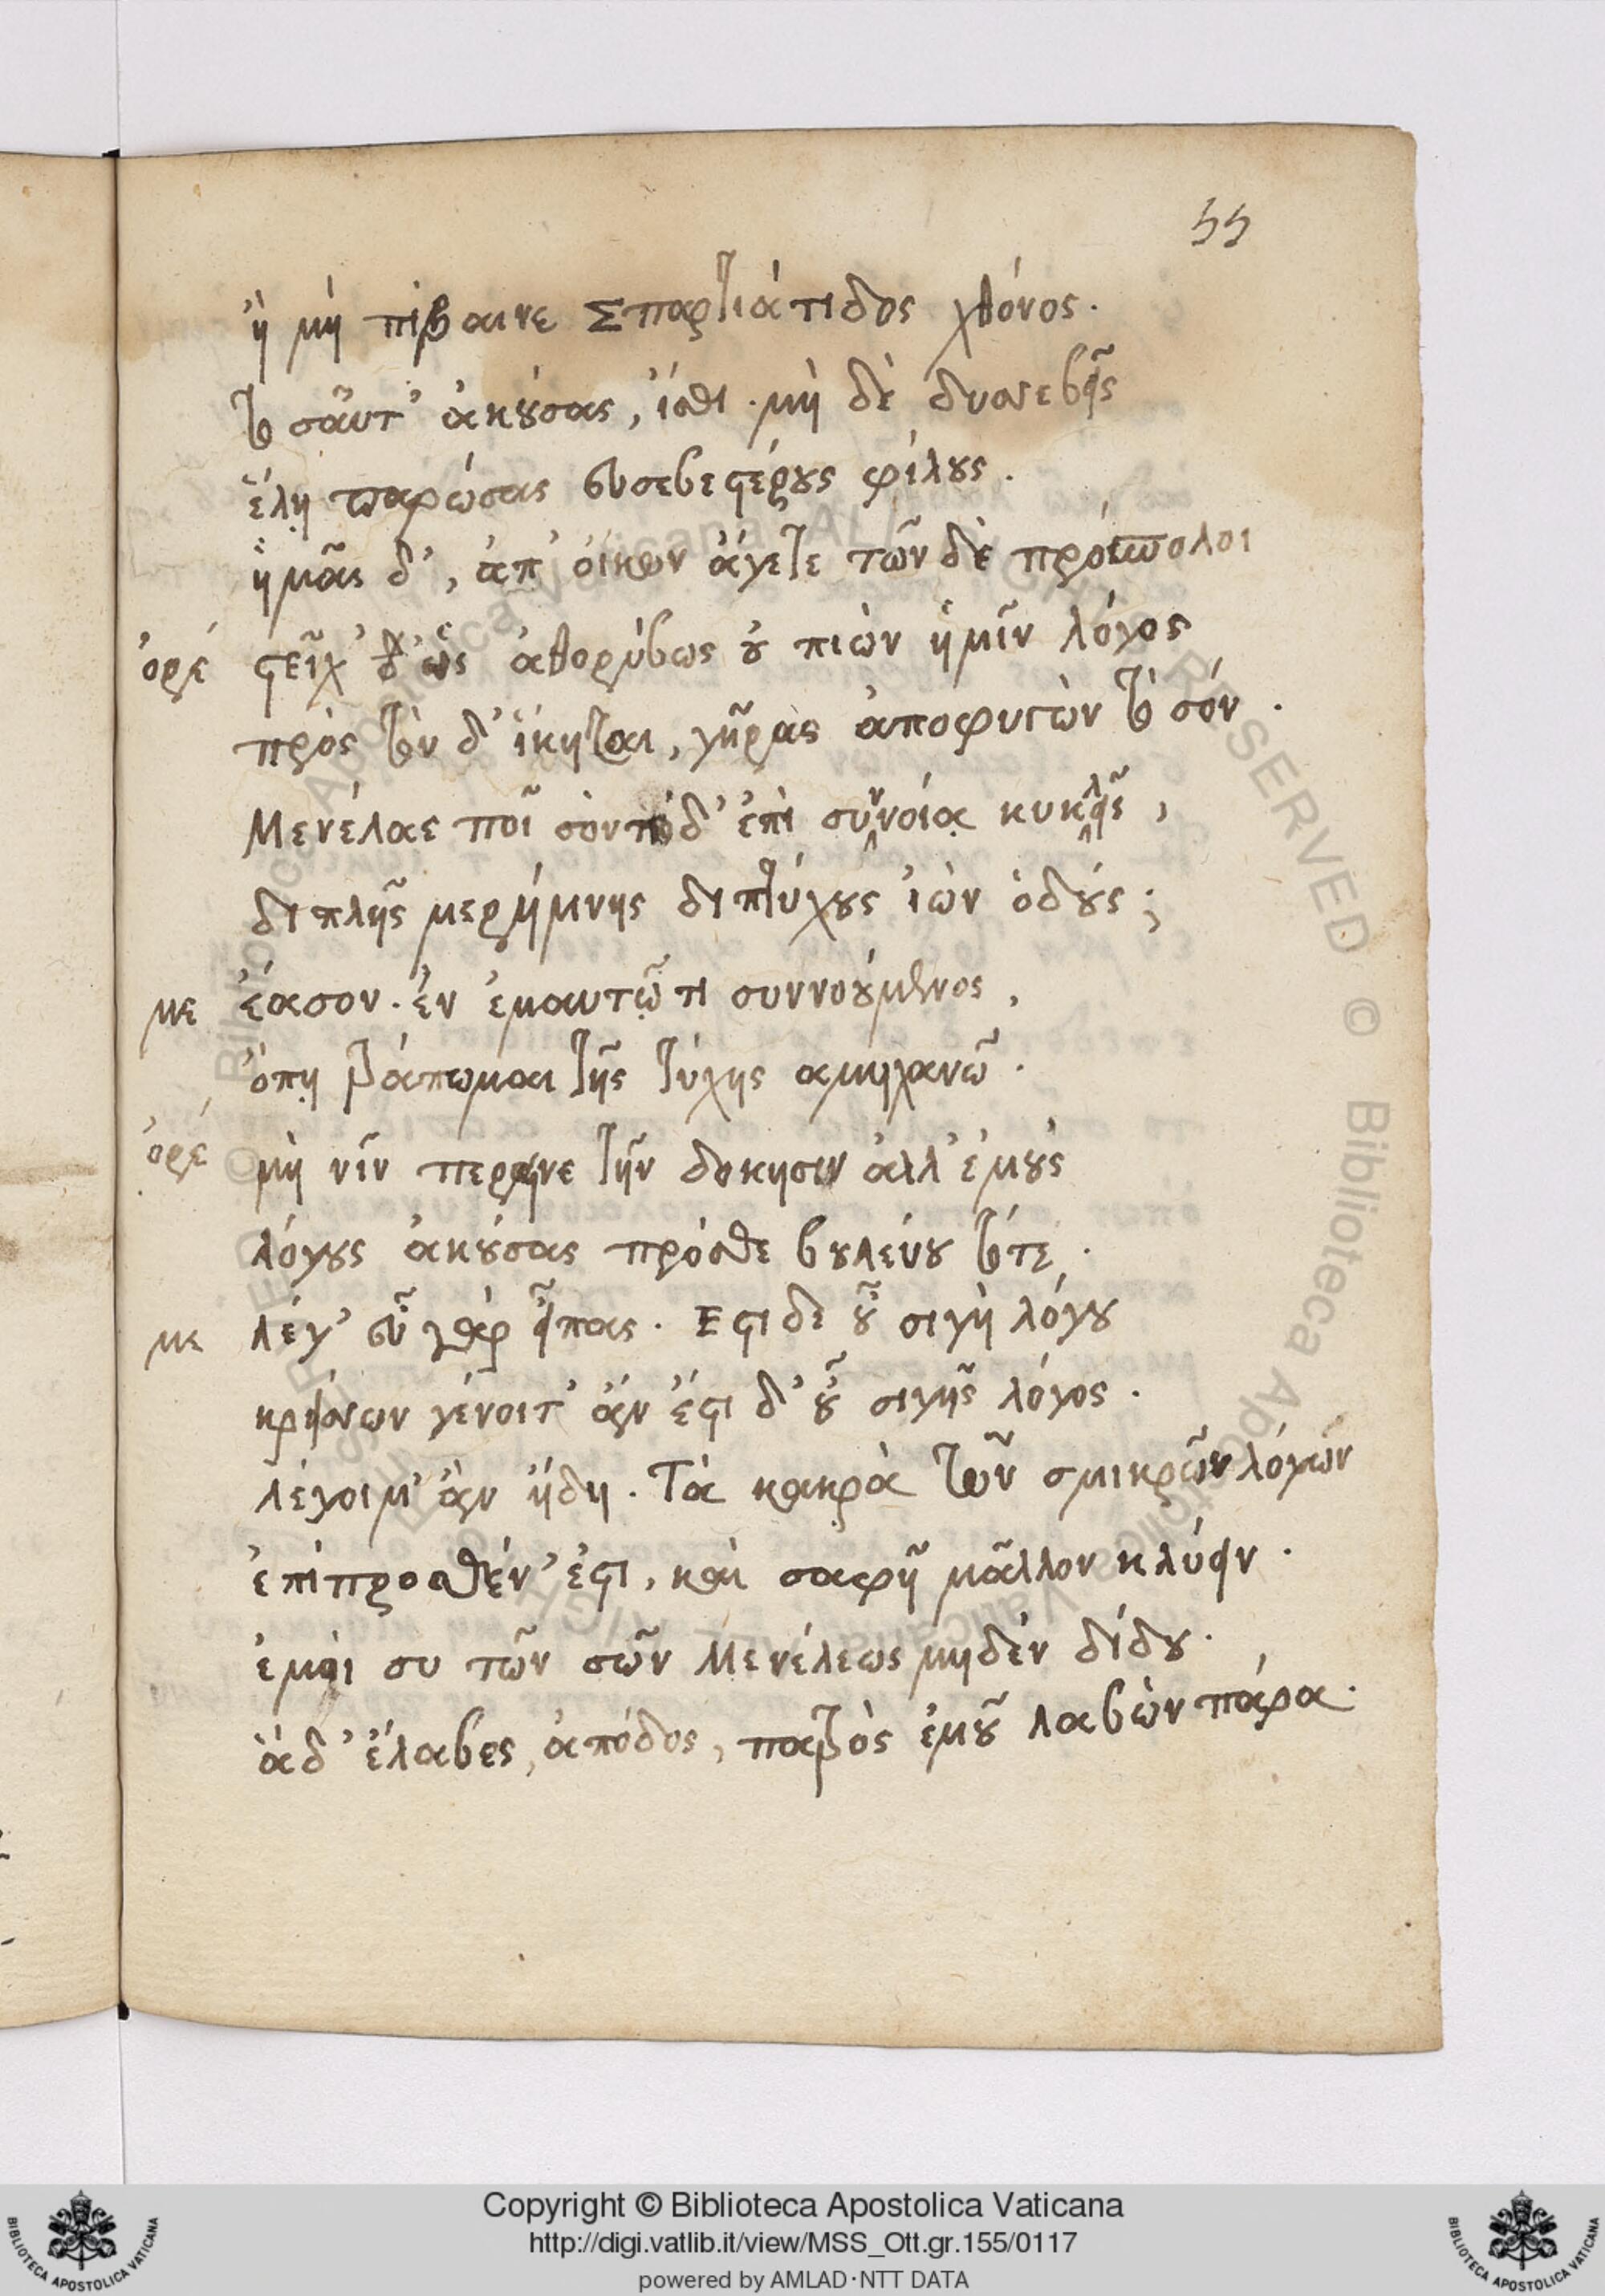 55
ἢ μὴ πίβαινε Σπαρτιάτιδος χθόνος.
τοσαῦτ' ἀκούσας, ἴσθι. μὴ δὲ δυσσεβεῖς
ἕλῃ παρώσας εὐσεβεστέρους φίλους.
ἡμᾶς δ', ἀπ' οἴκων ἄγετε τῶν δὲ πρόσπολοι
ὀρέ στεῖχ' ὡς ἀθορύβως οὑπιὼν ἡμῖν λόγος
πρὸς τὸν δ' ἵκηται, γῆρας ἀποφυγὼν τὸ σόν.
Μενέλαε ποῖ σὸν πόδ' ἐπὶ συννοίᾳ κυκλεῖς,
διπλῆς μερήμνης διπτύχους ἰὼν ὁδούς;
με ἔασον. ἐν ἐμαυτῷ τι συννούμενος,
ὅπῃ τράπωμαι τῆς τύχης αμηχανῶ.
ὀρέ μὴ νῦν περαινε τὴν δοκησιν ἀλλ' ἐμοὺς
λόγους ἀκούσας πρόσθε βουλεύου τότε.
με λέγ' εὖ γὰρ εἶπας. Εστι δε οὗ σιγὴ λόγου
κρείσσων γένοιτ' ἂν ἔστι δ' οὗ σιγῆς λόγος.
λέγοιμ' ἂν ἤδη. Τὰ μακρὰ τῶν σμικρῶν λόγων
ἐπίπροσθέν' ἐστι, καὶ σαφῆ μᾶλλον κλύειν.
ἐμοὶ συ τῶν σῶν Μενέλεως μηδὲν δίδου.
ἃ δ' ἔλαβες, ἀπόδος, πατρὸς ἐμοῦ λαβὼν πάρα.
Copyright © Biblioteca Apostolica Vaticana
http://digi.vatlib.it/view/MSS_Ott.gr.155/0117
powered by AMLAD·NTT DATA